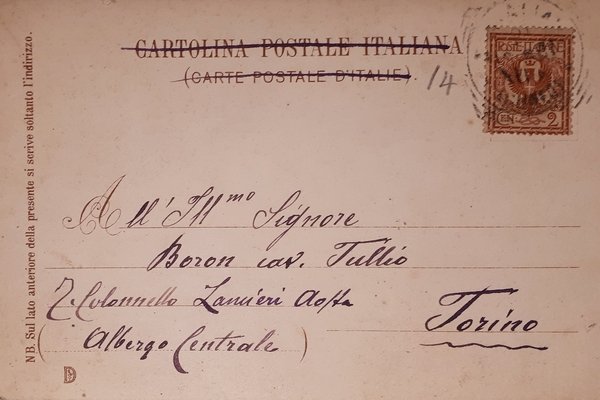 CARTOLINA POSTALE ITALIANA
(CARTE POSTALE D'ITALIE)
1/4
POSTE ITALIANE
CEN 2
All' Illmo Signore
Boron cav. Tullio
T. Colonnello Lancieri Aosta
(Albergo Centrale)
Torino
NB. Sul lato anteriore della presente si scrive soltanto l'indirizzo.
D